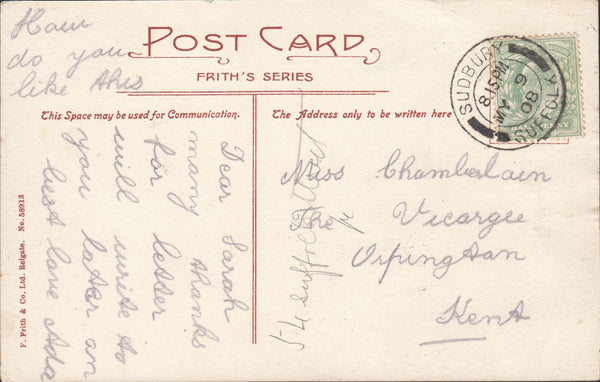 How
do you
like this
POST CARD
FRITH'S SERIES
This Space may be used for Communication.
The Address only to be written here
SUDBURY
8.15PM
MY 9
08
SUFFOLK
Dear Sarah
many thanks
for letter
will write to
you later an
best love Ada
Miss Chamberlain
The
Vicarage
Orpington
Kent
F. Frith & Co. Ltd. Reigate. No. 58913